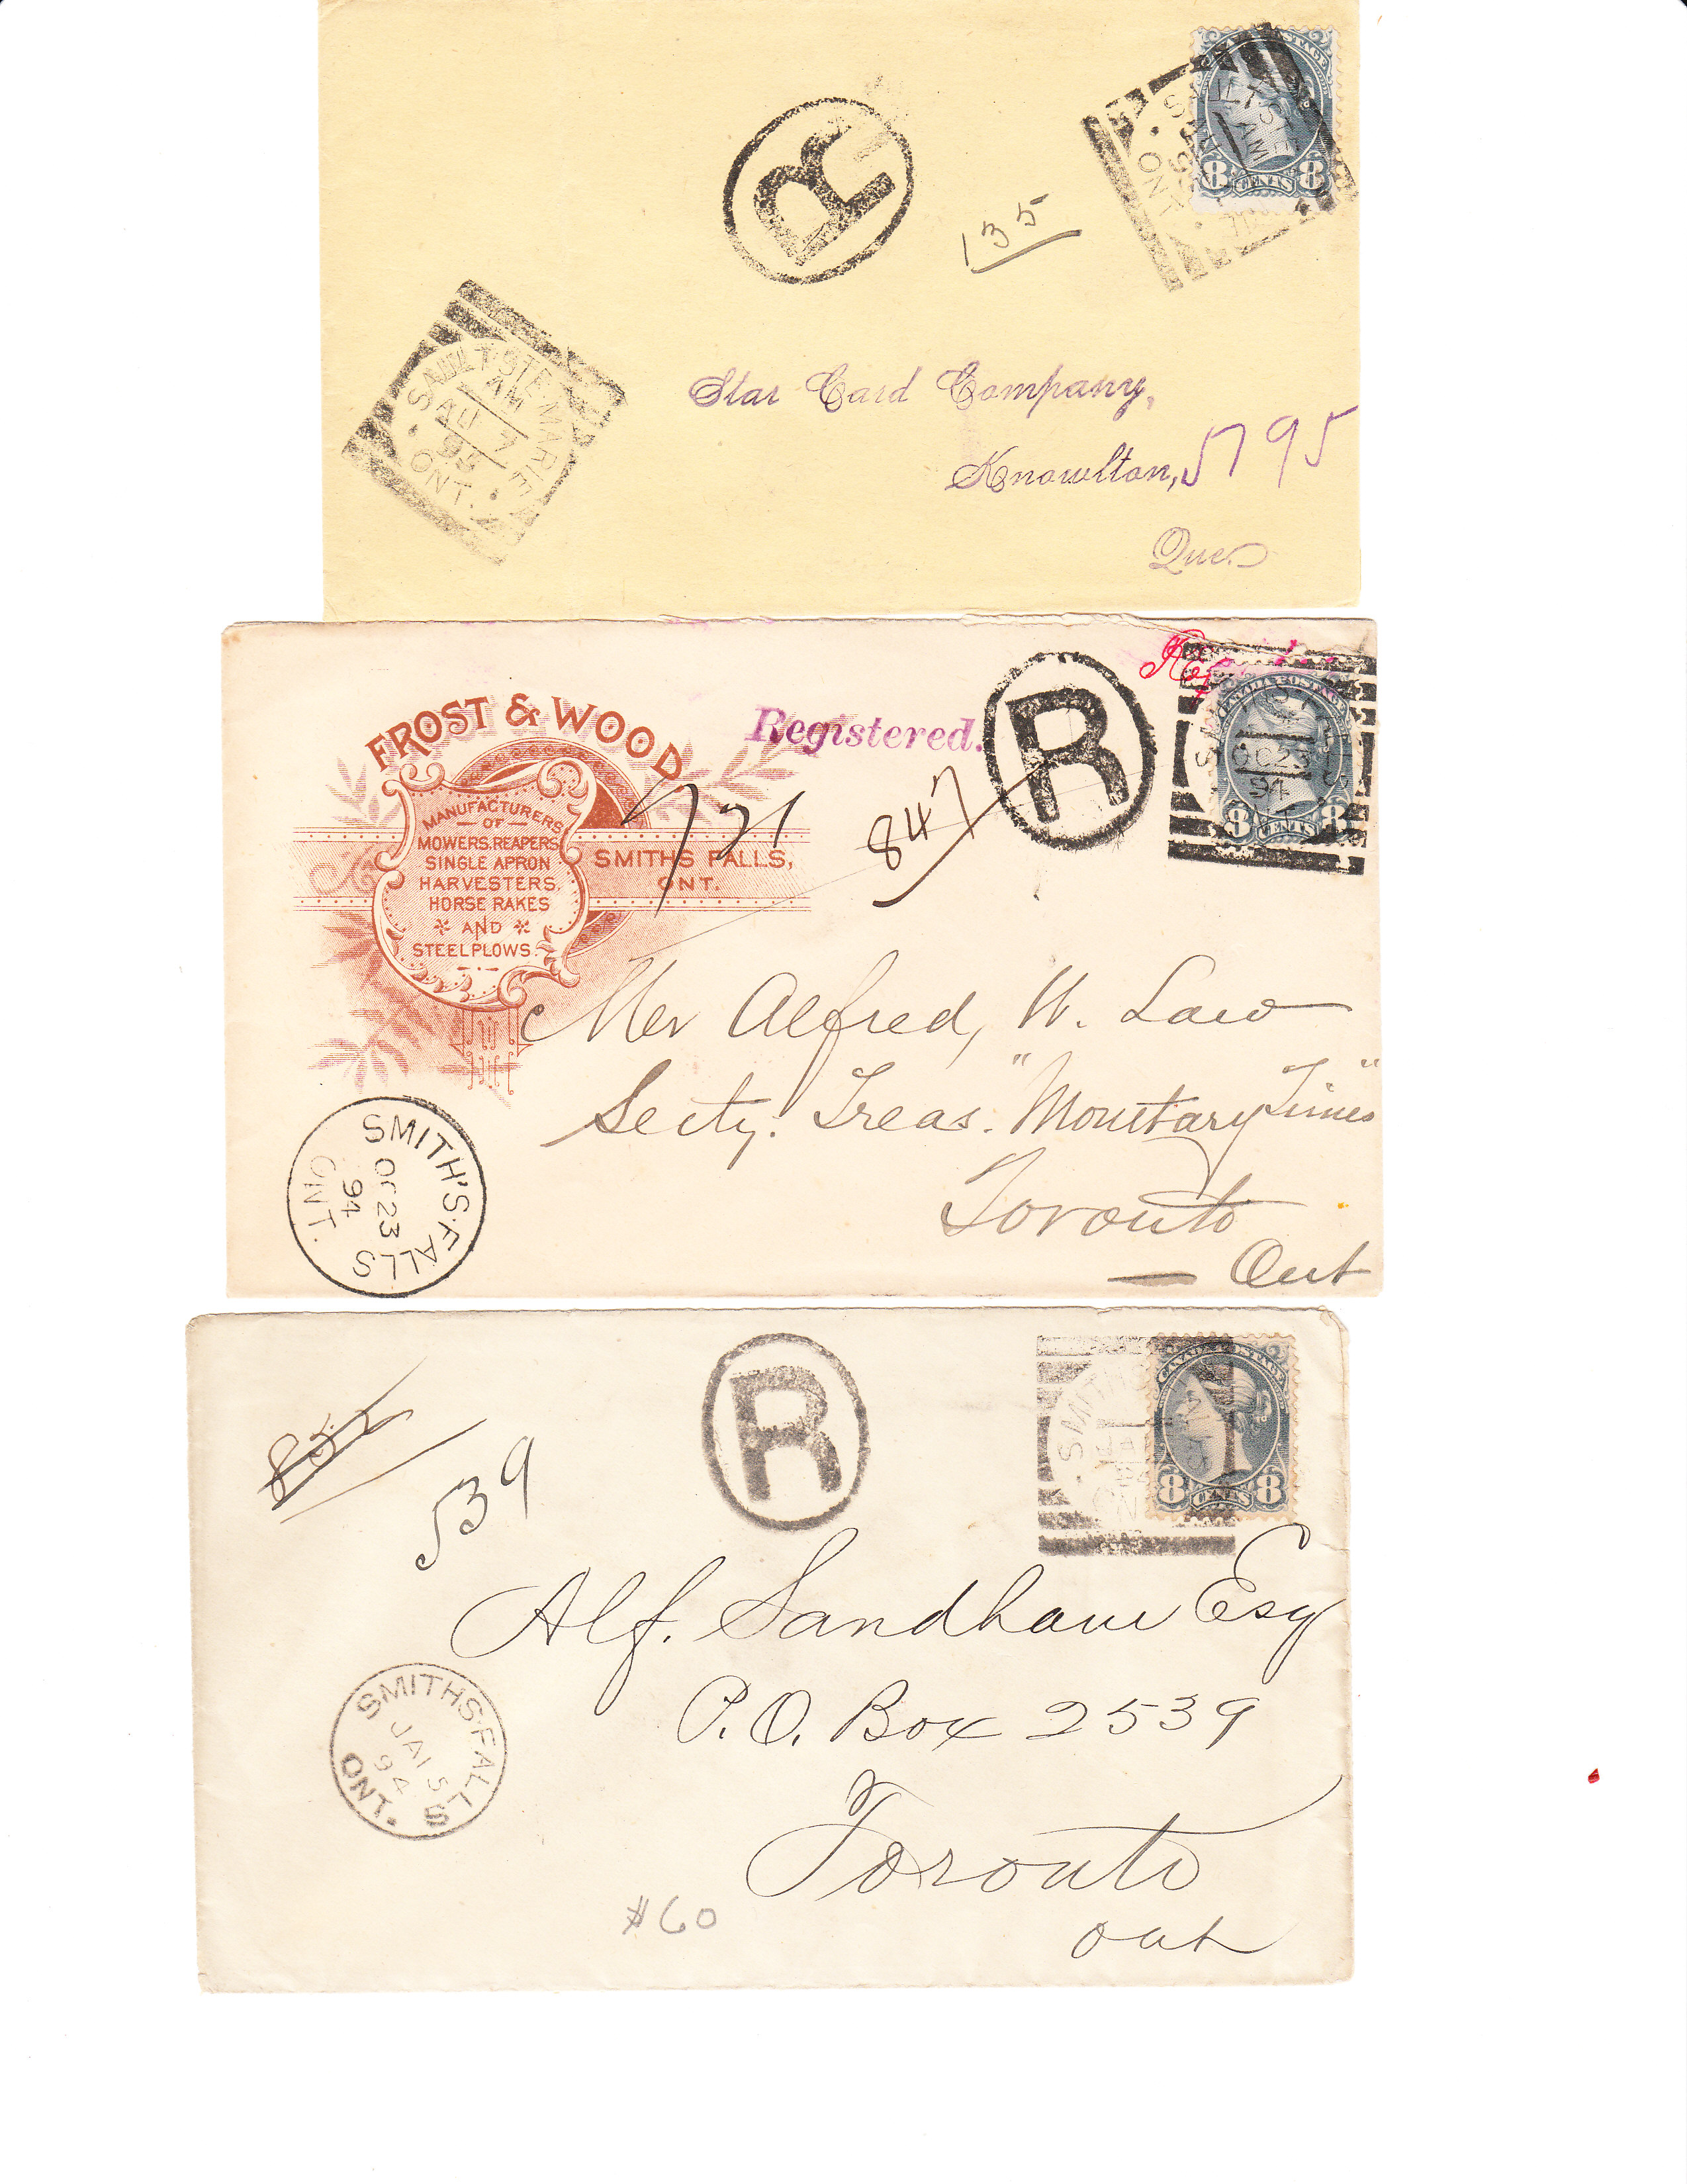 CANADA POSTAGE
8 CENTS 8
SAULT STE. MARIE
AM
ONT.
R
135
SAULT STE. MARIE
AM
AU 7
95
ONT.
Star Card Company,
Knowlton,
5795
Que.
FROST & WOOD
MANUFACTURERS
OF
MOWERS, REAPERS,
SINGLE APRON
HARVESTERS,
HORSE RAKES
AND
STEEL PLOWS.
SMITHS FALLS,
ONT.
Registered.
R
721
847
CANADA POSTAGE
8 CENTS 8
OC 23
94
Mr Alfred, W. Law
Secty. Treas. "Monetary Times"
Toronto
Ont
SMITH'S FALLS
OC 23
94
ONT.
852
539
R
CANADA POSTAGE
8 CENTS 8
SMITH
Alf. Sandham Esq
P.O. Box 2539
Toronto
Ont
SMITHS FALLS
JA 15
94
ONT.
#60